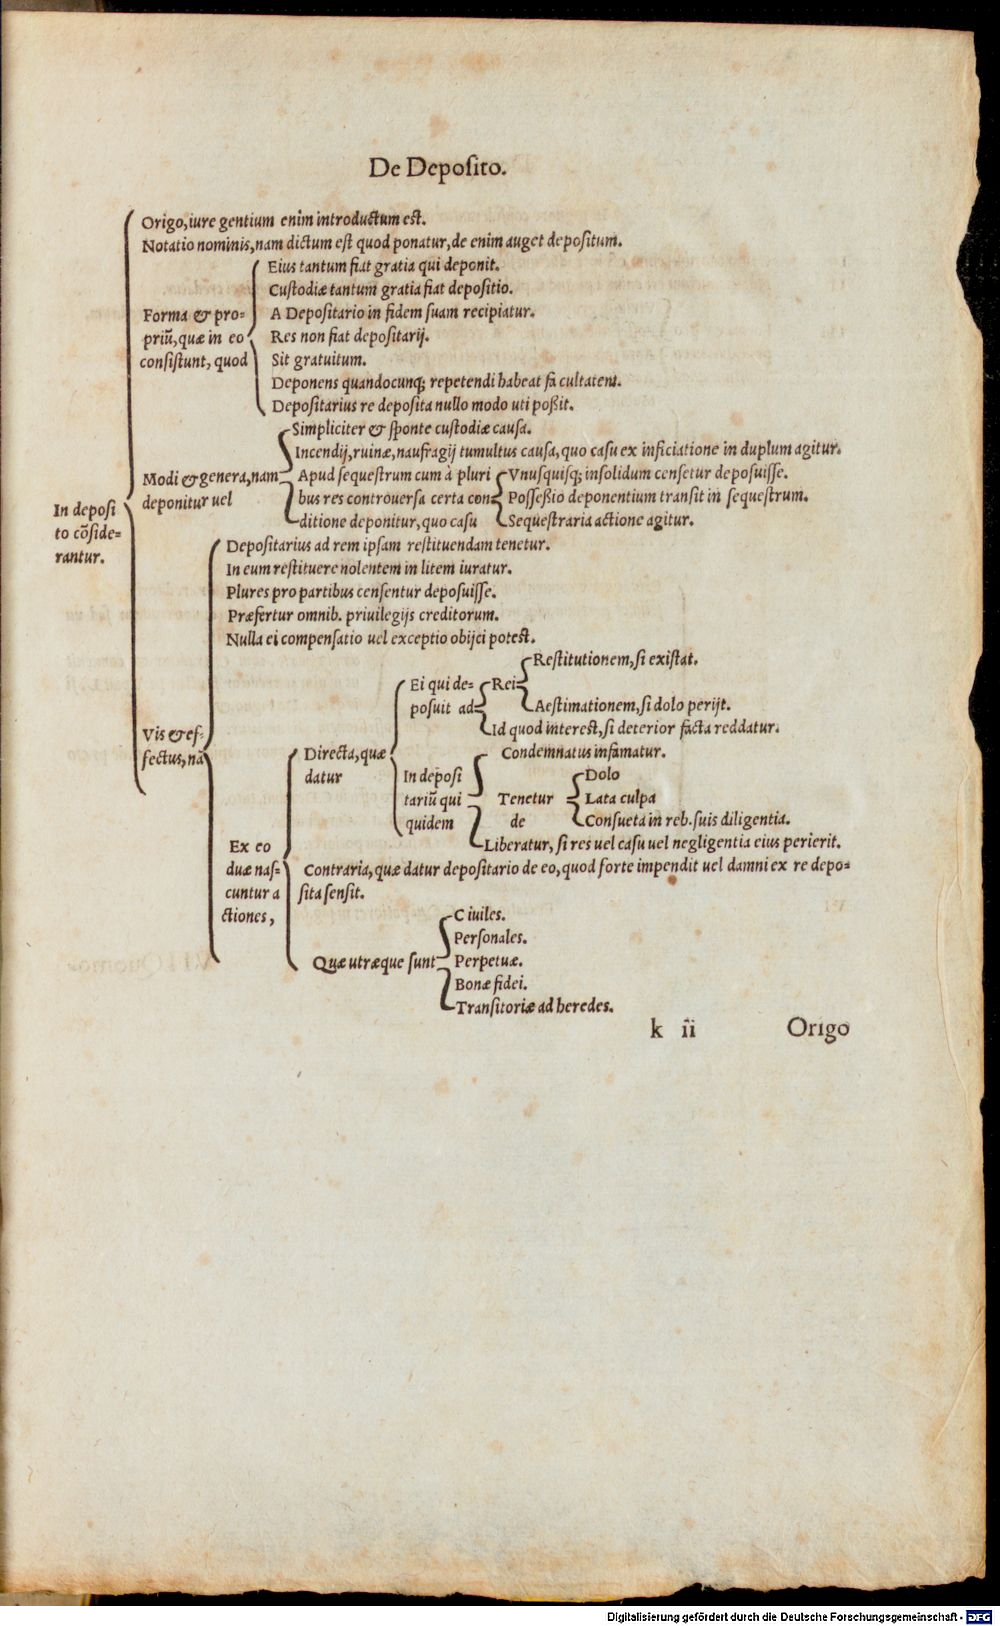 De Depoſito.
Origo, iure gentium enim introductum est.
Notatio nominis, nam dictum est quod ponatur, de enim auget depoſitum.
Eius tantum fiat gratia qui deponit.
Cuſtodiæ tantum gratia fiat depoſitio.
Forma & pro-
A Depoſitario in fidem ſuam recipiatur.
priū, quæ in eo
Res non fiat depoſitarij.
conſiſtunt, quod
Sit gratuitum.
Deponens quandocunq; repetendi habeat facultatem.
Depoſitarius re depoſita nullo modo uti poßit.
Simpliciter & ſponte cuſtodiæ cauſa.
Incendij, ruinæ, naufragij tumultus cauſa, quo caſu ex inficiatione in duplum agitur.
Modi & genera, nam
Apud ſequeſtrum cum à pluri
Vnuſquiſq; inſolidum cenſetur depoſuiſſe.
deponitur vel
bus res controuerſa certa con
Poſſeßio deponentium tranſit in ſequeſtrum.
In depoſi
ditione deponitur, quo caſu
Sequeſtraria actione agitur.
to cōſide-
rantur.
Depoſitarius ad rem ipſam reſtituendam tenetur.
In eum reſtituere nolentem in litem iuratur.
Plures pro partibus cenſentur depoſuiſſe.
Præfertur omnib. priuilegijs creditorum.
Nulla ei compenſatio uel exceptio obijci potest.
Reſtitutionem, ſi exiſtat.
Ei qui de-
Rei
poſuit ad
Aeſtimationem, ſi dolo perijt.
Id quod interest, ſi deterior facta reddatur.
Vis & ef-
fectus, nā
Directa, quæ
Condemnatus infamatur.
datur
In depoſi
Dolo
tariū qui
Tenetur
Lata culpa
quidem
de
Conſueta in reb. ſuis diligentia.
Liberatur, ſi res uel caſu uel negligentia eius perierit.
Ex eo
duæ naſ-
Contraria, quæ datur depoſitario de eo, quod forte impendit uel damni ex re depo-
cuntur a
ſita ſenſit.
ctiones,
Ciuiles.
Perſonales.
Quæ utræque ſunt
Perpetuæ.
Bonæ fidei.
Tranſitoriæ ad heredes.
k ii
Origo
Digitalisierung gefördert durch die Deutsche Forschungsgemeinschaft - DFG